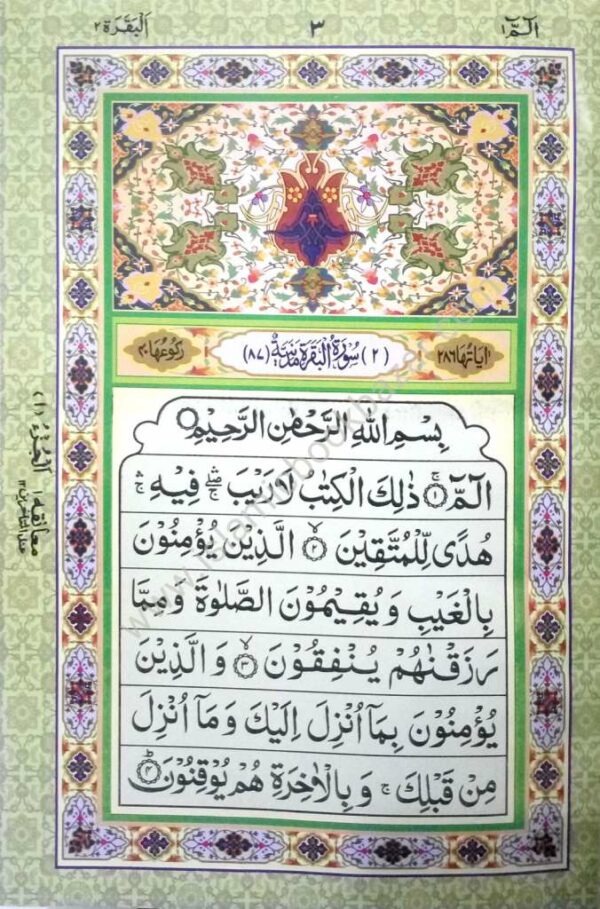 الٓمّٓ ١
٣
اَلْبَقَرَة ٢
اٰيَاتُهَا ٢٨٦
(٢) سُوْرَةُ الْبَقَرَةِ مَدَنِيَّةٌ (٨٧)
رُكُوْعُهَا ٤٠
بِسْمِ اللّٰهِ الرَّحْمٰنِ الرَّحِيْمِ
الٓمّٓ ۚ ۝١ ذٰلِكَ الْكِتٰبُ لَا رَيْبَ ۛۖ فِيْهِ ۛۚ
هُدًى لِّلْمُتَّقِيْنَ ۙ ۝٢ الَّذِيْنَ يُؤْمِنُوْنَ
بِالْغَيْبِ وَيُقِيْمُوْنَ الصَّلٰوةَ وَمِمَّا
رَزَقْنٰهُمْ يُنْفِقُوْنَ ۙ ۝٣ وَالَّذِيْنَ
يُؤْمِنُوْنَ بِمَآ اُنْزِلَ اِلَيْكَ وَمَآ اُنْزِلَ
مِنْ قَبْلِكَ ۚ وَبِالْاٰخِرَةِ هُمْ يُوْقِنُوْنَ ؕ ۝٤
اَلْجُزْءُ (١)
معانقه ١
عند المتاخرين ١٢
www.islamicbookbazaar.com